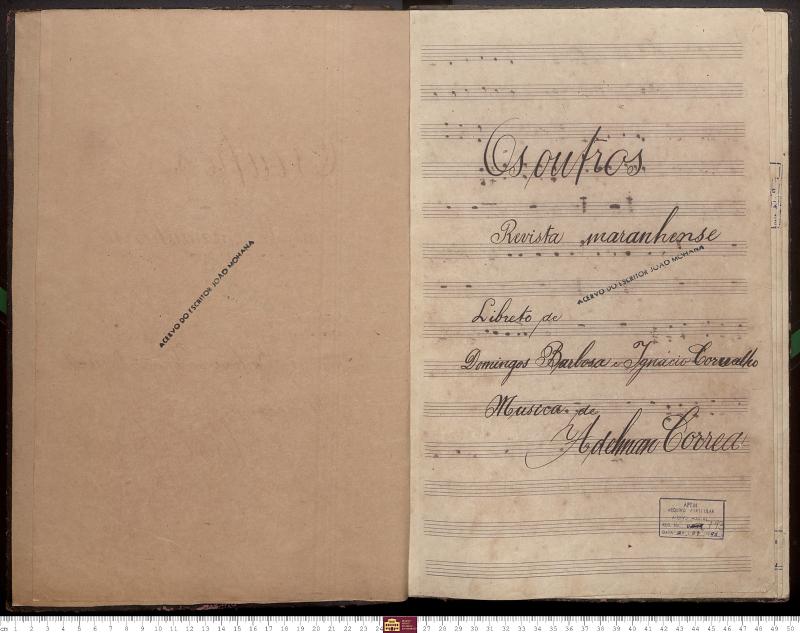 ACERVO DO ESCRITOR JOÃO MOHANA
Os outros
Revista maranhense
ACERVO DO ESCRITOR JOÃO MOHANA
Libreto de
Domingos Barbosa e Ignacio
Musica de
Adelman Correa
APEM
ARQUIVO PARTICULAR